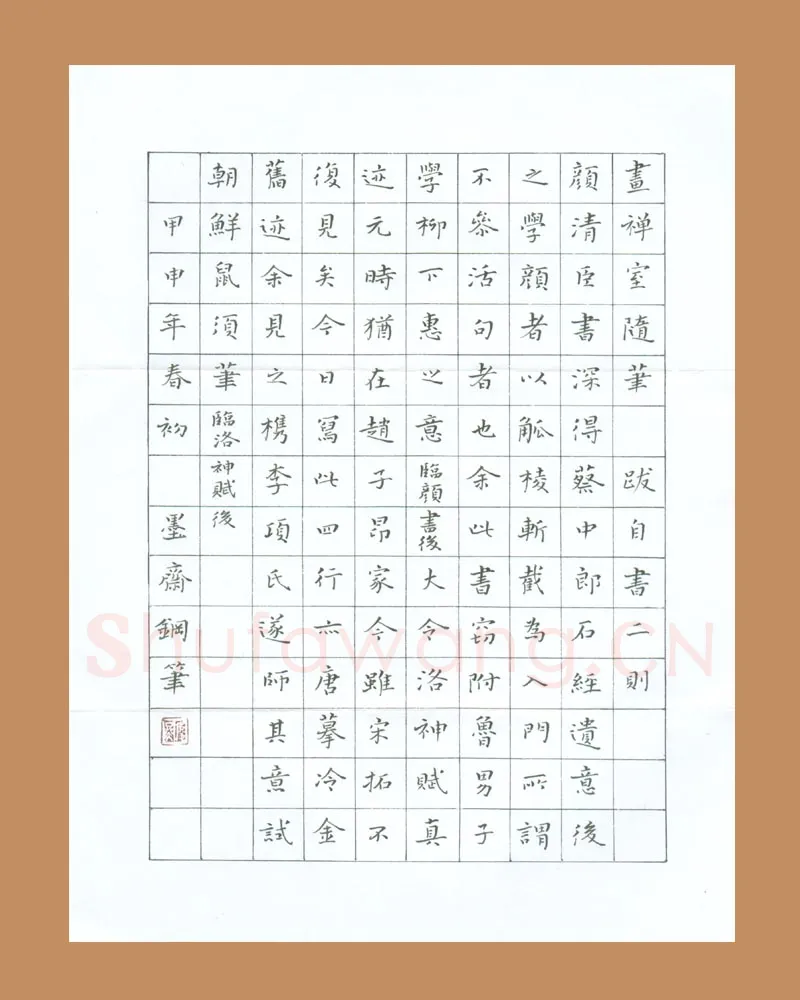 畫禅室隨筆 跋自書二則
顔清臣書深得蔡中郎石經遺意後
之學顔者以觚棱斬截為入門所謂
不參活句者也余此書竊附魯男子
學柳下惠之意臨顔書後大令洛神賦真
迹元時猶在趙子昂家今雖宋拓不
復見矣今日寫此四行亦唐摹冷金
舊迹余見之檇李項氏遂師其意試
朝鮮鼠須筆臨洛神賦後
甲申年春初 墨齋鋼筆
Shufawang.CN